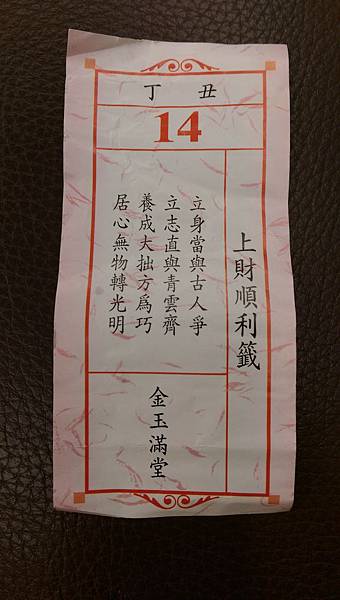 丁丑
14
上財順利籤
立身當與古人爭
立志直與青雲齊
養成大拙方為巧
居心無物轉光明
金玉滿堂